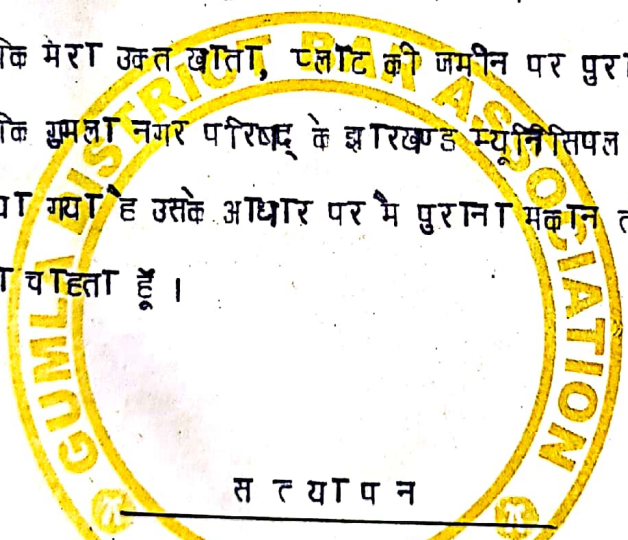 कि मेरा उक्त खाता, प्लॉट की जमीन पर पुरा
कि गुमला नगर परिषद् के झारखण्ड म्यूनिसिपल
या गया है उसके आधार पर मै पुराना मकान त
ा चाहता हूँ ।
GUMLA DISTRICT BAR ASSOCIATION
सत्यापन